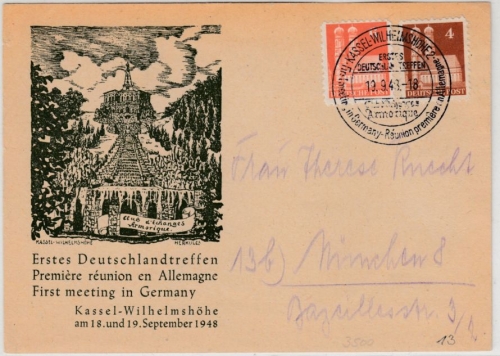 4
DEUTSCHE POST
KASSEL-WILHELMSHÖHE 2
ERSTES
DEUTSCHLANDTREFFEN
19.9.48.-18
Club d'échanges
Armorique
First meeting in Germany-Réunion première en Allemagne
club d'échanges
Armorique.
KASSEL-WILHELMSHÖHE HERKULES
Erstes Deutschlandtreffen
Première réunion en Allemagne
First meeting in Germany
Kassel-Wilhelmshöhe
am 18. und 19. September 1948
Frau Therese Knecht
13b) München 8
Bazeillesstr. 3/1.
3500
13